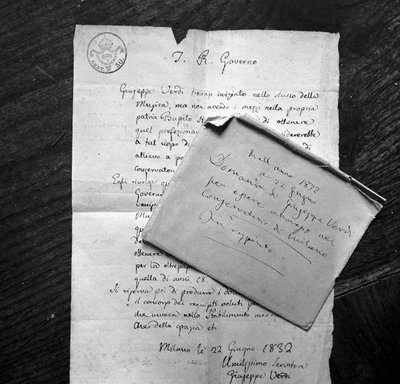 I. R. Governo
Giuseppe Verdi trovasi iniziato nello studio della
Musica, ma non avendo i mezzi nella propria
patria Busseto di ottenere
quel perfezionamento desidererebbe
a tal uopo di
allievo a
conservatorio
Egli rivolge
Governo
Mu
ottenere
per la oltrepassa
quella di anni 18.
Si riserva poi di produrre i
il concorso dei requisiti voluti
che invoca nello Stabilimento
Che della grazia ec
Milano li 22 Giugno 1832
Umilissimo Servitore
Giuseppe Verdi
Nell'anno 1832
ai 22 giugno
Domanda di Giuseppe Verdi
per essere ammesso nel
Conservatorio di Milano
Fu respinto.